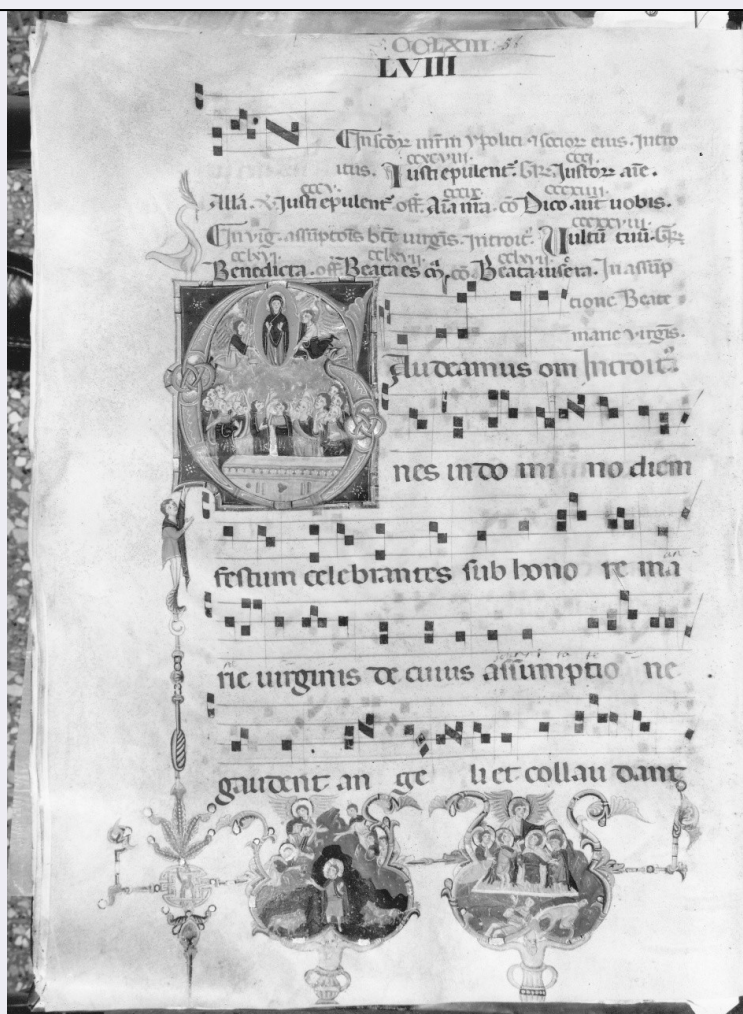 CCLXIII
LVIII
In scōr mrm ypoliti ⁊ socior eius. Intro
ccxcviii. ccci.
itus. Iusti epulent. Gr. Iustor aīe.
cccv. cccix. cccxiiii.
Alla. Iusti epulent off. Aīa nr̄a. cō Dico aut uobis.
cccxxviii.
In vig. assūptōis bt̄e uirgīs. Introit. Uultū tuū. Gr.
cclxvi. cclxvii. cclxvii.
Benedicta. off. Beata es cō. Beata uiscera. In assūp
tione Beate
marie virgīs.
Gaudeamus om Introit
nes in do mi no diem
festum celebrantes sub hono re ma
rie uirginis de cuius assumptio ne
gaudent an ge li et collau dant